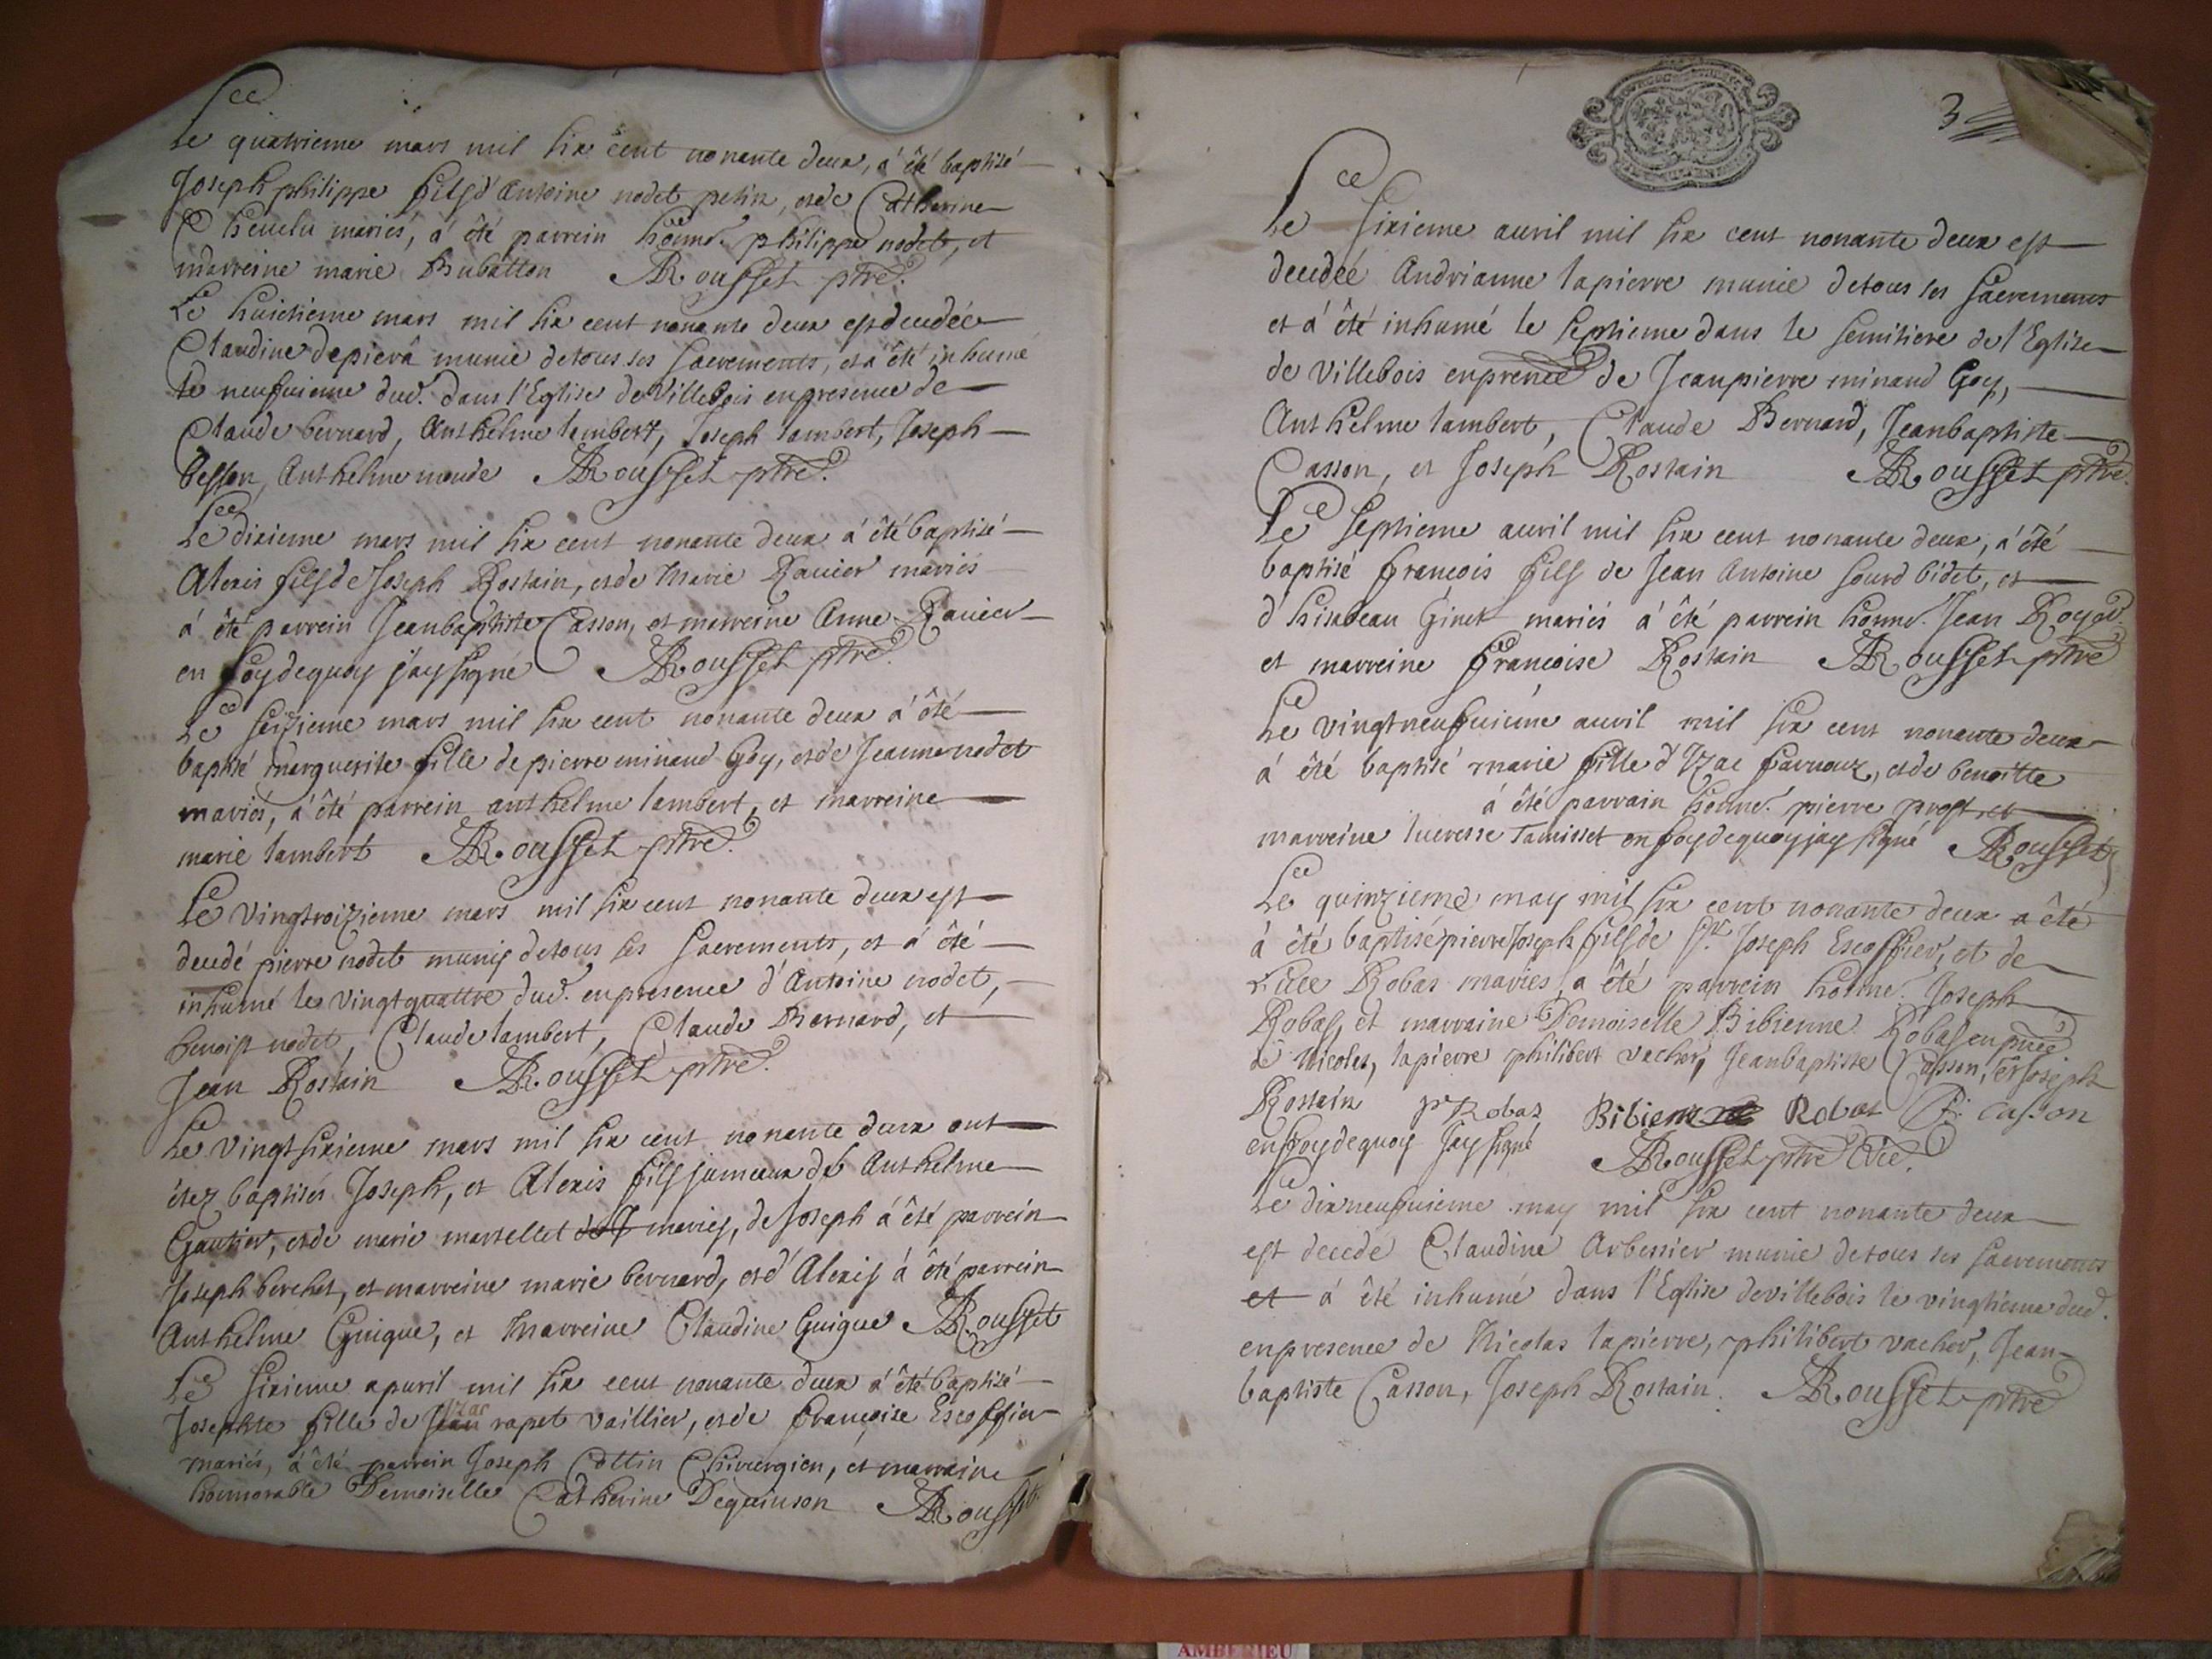 Le quatrieme mars mil six cent nonante deux, a été baptisé
Joseph philippe fils d'Antoine nodet petin, et de Catherine
Cheuelu mariés, a été parrein honnr. philippe nodet, et
marreine marie Rubatton ARousset ptre.
Le huictieme mars mil six cent nonante deux est decedée
Claudine depierâ munie de tous ses sacrements, et a été inhumé
le neufuieme dud. dans l'Eglise de Villebois en presence de
Claude bernard, Anthelme lambert, Joseph lambert, Joseph
besson, Anthelme monde ARousset ptre.
Le dixieme mars mil six cent nonante deux a été baptisé
Alexis fils de Joseph Rostain, et de Marie Rauier mariés
a été parrein Jeanbaptiste Casson, et marreine Anne Rauier
en foy de quoy j'ay signé ARousset ptre.
Le seizieme mars mil six cent nonante deux a été
baptisé marguerite fille de pierre minaud Goy, et de Jeanne nodet
mariés, a été parrein anthelme lambert, et marreine
marie lambert ARousset ptre.
Le vingtroizieme mars mil six cent nonante deux est
decedé pierre nodet munis de tous ses sacrements, et a été
inhumé le vingtquattre dud. en presence d'Antoine nodet,
benoist nodet, Claude lambert, Claude Bernard, et
Jean Rostain ARousset ptre.
Le vingtsixieme mars mil six cent nonante deux ont
étez baptisés Joseph, et Alexis fils jumeaux de Anthelme
Gautier, et de marie martellet mariés, de Joseph a été parrein
Joseph berchet, et marreine marie bernard, et d'Alexis a été parrein
Anthelme Guigue, et Marreine Claudine Guigue ARousset
Le sixieme apuril mil six cent nonante deux a été baptisé
Josephte fille de Jean Izac rapet vaillier, et de françoise Escoffier
mariés, a été parrein Joseph Cottin Chirurgien, et marraine
honnorable Demoiselle Catherine Dequinson ARousset
3
Le sixieme auril mil six cent nonante deux est
decedeé Andrianne lapierre munie de tous ses sacrements
et a été inhumé le septieme dans le semitiere de l'Eglise
de Villebois en prence de Jeanpierre minaud Goy,
Anthelme lambert, Claude Bernard, Jeanbaptiste
Casson, et Joseph Rostain ARousset ptre.
Le septieme auril mil six cent nonante deux, a été
baptisé françois fils de Jean Antoine sourd bidet, et
d'hisabeau Ginet mariés a été parrein honnr. Jean Royer
et marreine françoise Rostain ARousset ptre
Le vingtneufuieme auril mil six cent nonante deux
a été baptisé marie fille d'Izac farnoux, et de benoitte
a été parrain honnr. pierre prost et
marreine lucresse Tamisset en foy de quoy j'ay signé ARousset
Le quinzieme may mil six cent nonante deux a été
a été baptisé pierre Joseph fils de Sr. Joseph Escoffier, et de
Robas mariés, a été parrein honnr. Joseph
Robas, et marraine Demoiselle Bibienne Robas en pnce
de Nicolas, lapierre philibert vacher, Jeanbaptiste Casson, et Joseph
Rostain Robas Bibienne Robat Casson
en foy de quoy j'ay signé ARousset ptre Vic.
Le dixneufuieme may mil six cent nonante deux
est decedé Claudine Arbessier munie de tous ses sacrements
et a été inhumé dans l'Eglise de villebois le vingtieme dud.
en presence de Nicolas lapierre, philibert vacher, Jean
baptiste Casson, Joseph Rostain. ARousset ptre
AMBERIEU